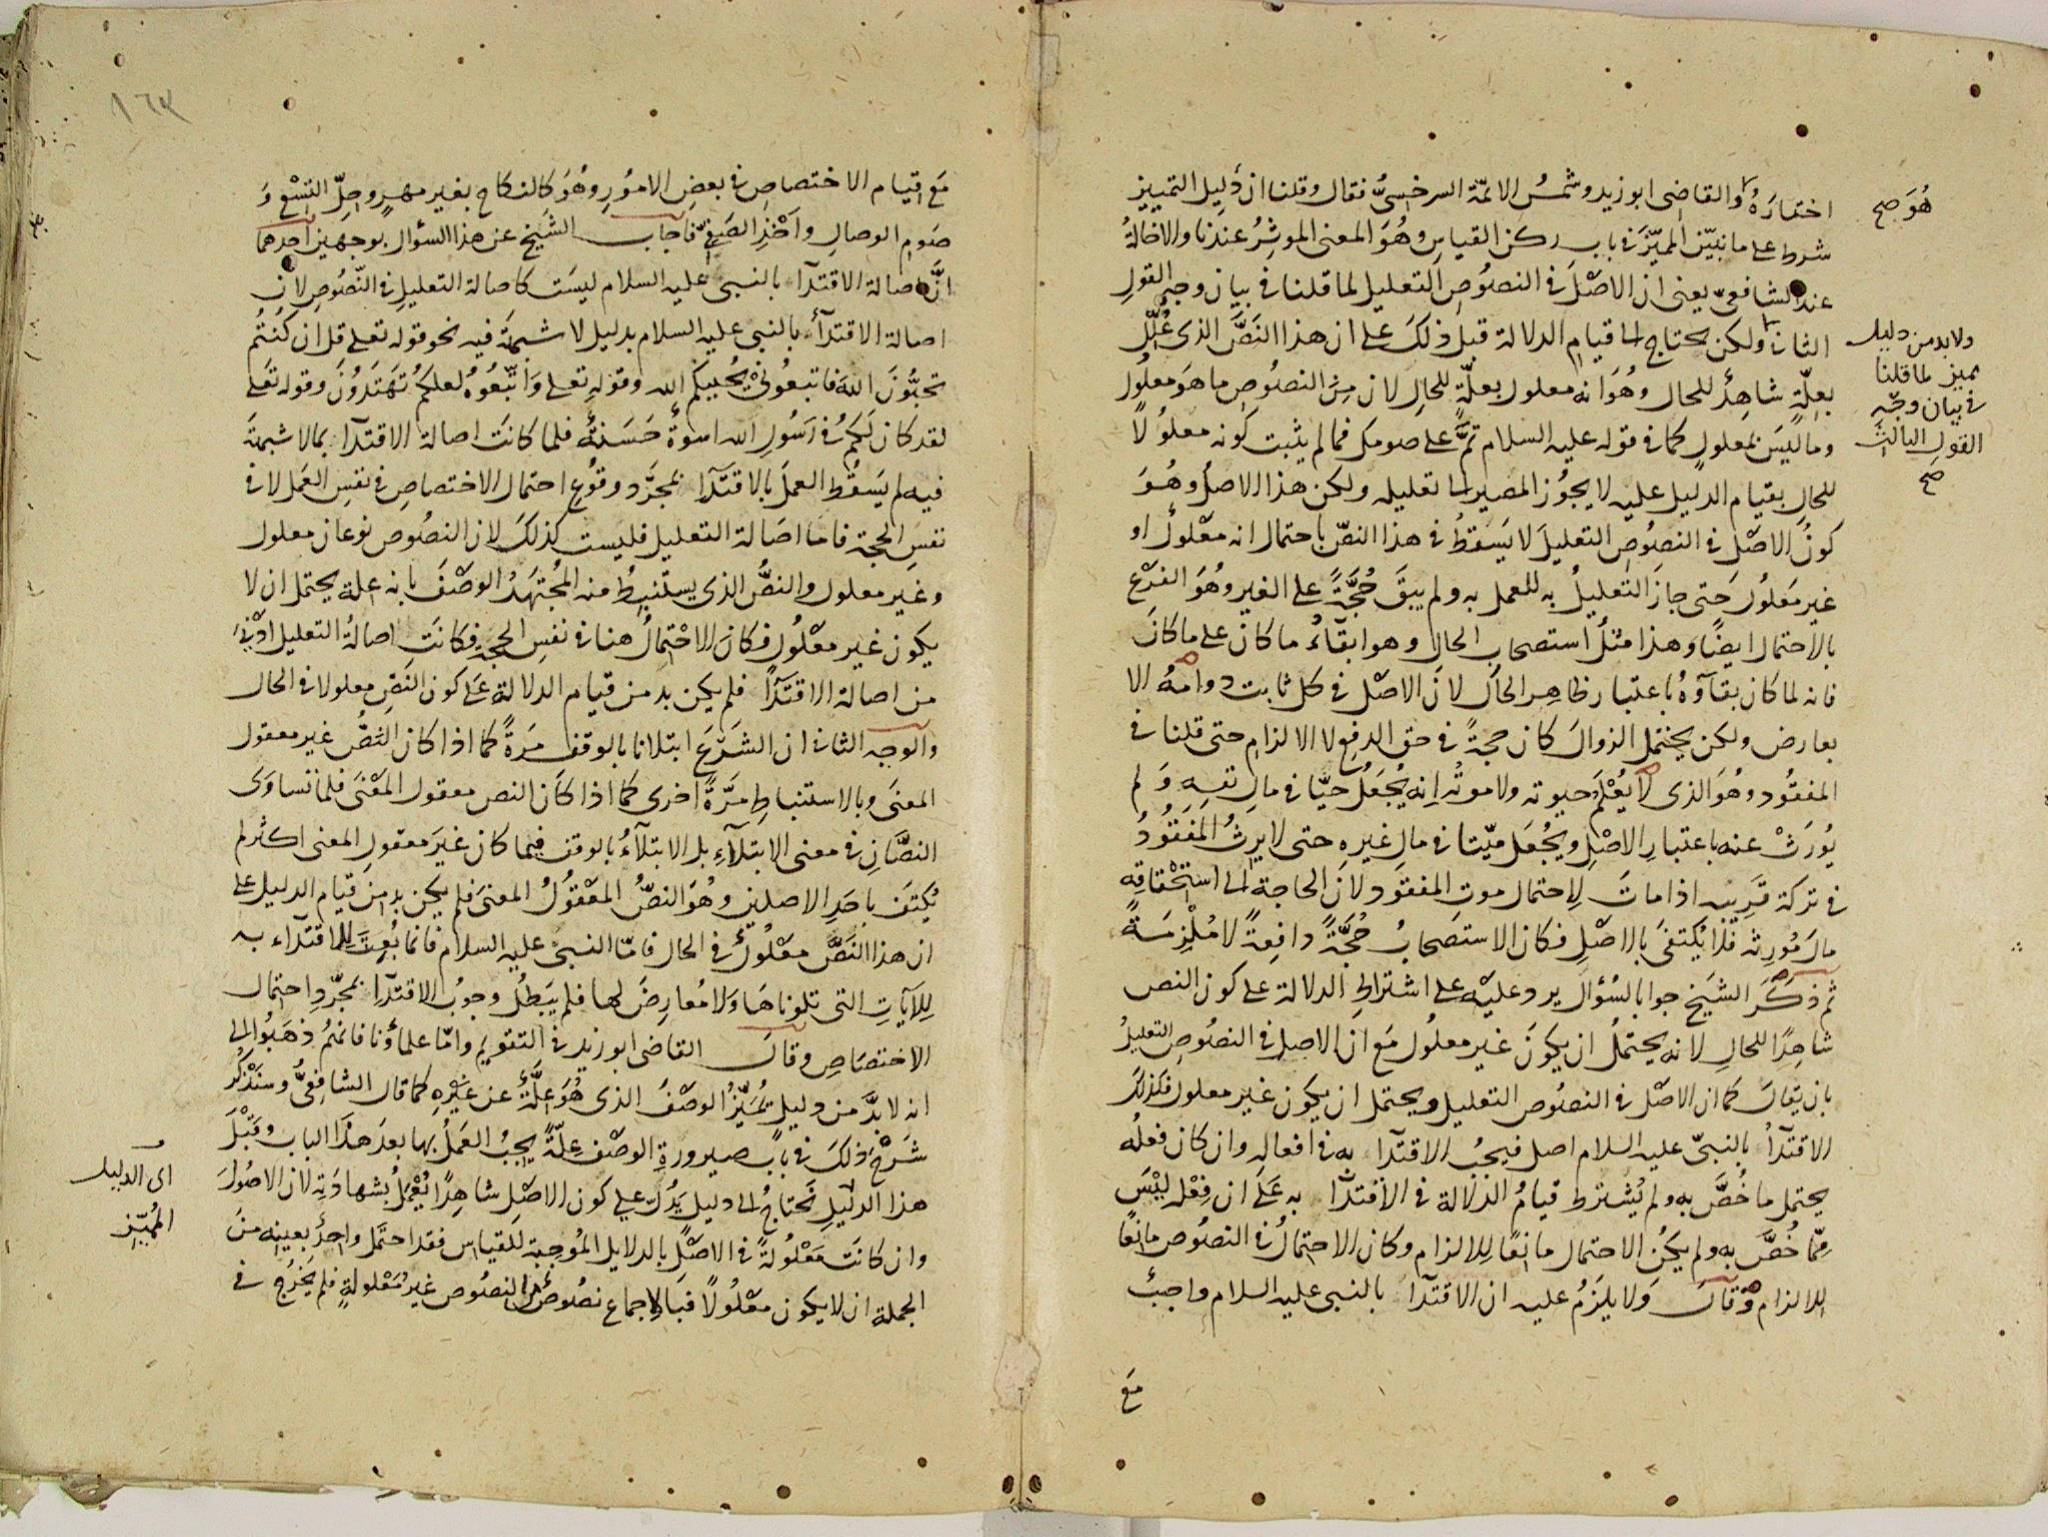 هُوَ صح
اختارَهُ والقاضى ابو زيد وشمسُ الائمّة السرخسىُّ فقال وقلنا ان دَليل التمييز
شرط على ما نبيّن المميّزَ فى باب ركن القياسِ وهُوَ المعنى الموثِرُ عندنا والاخالةُ
عند الشافعىّ يعنى ان الاصْلَ فى النصُوصِ التعليل لما قلنا فى بيان وجهِ القولِ
الثانى ولكن يحتاج الى قيامِ الدلالة قبل ذلكَ على ان هذا النَصَّ الذى عُلِّل
ولا بد من دليل
مميز لما قلنا
فى بيان وجه
القول الثالث
صح
بعلّةٍ شاهِدٌ للحال وهُوَ انه معلول بعلّةٍ للحالِ لان مِنَ النصُوصِ ما هوَ معلُول
وما ليسَ بمعلولٍ كما فى قوله عليه السلام تمَّ على صومك فما لم يثبت كونه معلولًا
للحالِ بقيام الدليل عليه لا يجوُز المصير الى تعليله ولكن هذا الاصلُ وهُوَ
كونُ الاصْل فى النصُوصِ التعليلَ لا يَسقطُ فى هذا النصّ باحتمال انه معْلولٌ او
غير مَعلُول حَتى جازَ التعليلُ به للعمل به ولم يبقَ حُجَّةً على الغير وهُوَ الفرْع
بالاحتمال ايضًا وهذا مثلُ استصحاب الحال وهو ابقآءُ ما كان على ما كانَ
فانه لما كان بقآؤهُ باعتبار ظاهِر الحال لان الاصْل فى كل ثابت دوامهُ الا
بعارض ولكن يحتمل الزوالَ كان حجةً فى حق الدفع لا الالزامِ حتى قلنا فى
المفقُود وهُوَ الذى لا يُعْلَمُ حيوته ولا موتُه اِنه يُجعَلُ حيّا فى مالِ نفسِهِ وَلم
يُورَثْ عنه باعتبارِ الاصْلِ ويُجْعَل ميّتا فى مال غيرهِ حتى لا يَرِثُ المفقُودُ
فى تركة قَرِيبه اذا ماتَ لاِحتمال موت المفقود لانَ الحاجة الى استحْقاقِهِ
مالَ مُورِثِه فلا يُكتفىَ بالاصْلِ فكان الاستصحابُ حُجَّةً دافِعةً لا مُلْزِمَةً
ثم ذكَرَ الشيَخ جوابا لسُؤال يرد عليْه على اشتراطِ الدلالة على كون النص
شاهِدًا للحالِ لانه يحتملُ ان يكونَ غير معلُول مَع ان الاصل فى النصُوصِ التعليلُ
بان يقالَ كما ان الاصْل فى النصُوص التعليل ويحتمل ان يكون غير معلول فكذلك
الاقتدآُ بالنبىّ عليه السلام اصل فيجبُ الاقتدآ به فى افعاله وان كان فعلُه
يحتمل ما خُصَّ به ولم يُشترط قيامُ الدلالة فى الاقتدآ به عَلَى ان فِعْله ليْسَ
مِمّا خُصَّ به ولم يكُن الاحتمال مانعًا لِلالزام وكان الاحتمالُ فى النصُوص مانعًا
للالزام وَ قالَ وَلا يلزَمُ عليه ان الاقتدآَ بالنبى عليه السلام واجبٌ
مَع
١٦٣
مَع قيام الاختصاص فى بعضِ الامُورِ وهُوَ كالنكاح بغير مهرٍ وحلِّ التِسْع وَ
صَومِ الوصالِ واَخْذِ الصَفِىّ فاجابَ الشيخ عن هذا السؤال بوجهين احدهما
انَّ اصالة الاقتدآ بالنبىّ عليه السلام ليسَت كاصالة التعليلِ فى النّصُوصِ لان
اصالة الاقتدآءِ بالنبى عليه السلام بدليل لا شبهةَ فيه نحو قوله تعلى قل ان كُنتُم
تحبُّونَ اللهَ فاتبعُونىْ يُحبِبكُم الله وقوله تعلى وَاتَّبِعُوهُ لعلكمُ تَهتدُونَ وقوله تعَلى
لقد كان لكمُ فى رَسُولِ الله اسوةٌ حَسَنةٌ فلما كانَت اصالة الاقتدآ بما لا شبهةَ
فيه لم يَسقُط العمَلَ بالاقتدَآ بمجرَّد وقُوعِ احتمال الاختصاصِ فى نفسِ العَمل لا فى
نفسِ الحجة فاما اصَالة التعليل فليست كذلكَ لان النصُوص نوعان معلول
وغير معلول والنصُّ الذى يستنبِطُ منه المُجتهدُ الوصْفَ بانه علة يحتمل ان لا
يكون غير معْلُول فكانَ الاحْتمالُ هنا فى نفسِ الحجةِ فكانَتِ اصالةُ التعليل ادْنى
من اصالة الاقتدآ فلم يكن بد من قيام الدلالة عَلى كون النص معلولا فى الحال
والوجه الثانى ان الشرَعَ ابتلانا بالوقف مَرةً كما اذا كان النصُّ غير معقول
المعنىَ وبالاستنباطِ مرَّةً اخرى كما اذا كانَ النص معقول المعْنىَ فلما تساوَىَ
النصَّانِ فى معنى الابتلآءِ بل الابتلآءُ بالوقف فيما كان غيرَ معقولِ المعنى اكثر لم
يُكتفَ باحَدِ الاصلين وهُوَ النصُّ المعْقُولُ المعنىَ فلم يكن بد من قيام الدليل على
ان هذا النصَّ معْلُولٌ فى الحال فامّا النبىُّ عليه السلام فانما بُعِثَ لِلاقتدآء به
لِلآيَاتِ التى تلوناهَا وَلا مُعارِضَ لها فلم يَبطلُ وجوبُ الاقتدآ بمجرَّدِ احتمال
الاختصَاصِ وقالَ القاضى ابو زيد فى التقويم وامّا علماؤنا فانهمُ ذهَبُوا الى
انه لا بدَّ من دليلٍ يُميِّزُ الوصْفَ الذى هُوَ علَّةٌ عن غيْرِهِ كما قال الشافِعىُّ وسنَذكُر
شَرْحَ ذلكَ فى بابِ صيرورةِ الوصْف علّةً يجبُ العَملُ بها بعدَ هذا الباب وقبْلَ
هذا الدليلِ نحتاجُ الى دليل يَدُلّ على كون الاصْلِ شاهِدًا يُعْملُ بشهادَتِه لان الاصُولَ
اى الدليل
المُميِّز
وان كانَت مَعْلُولةً فى الاصْلِ بالدلايل المُوجِبة لِلقياس فقد احتمَل واحِدٌ بعينِه منَ
الجملة ان لا يكون معْلُولًا فبالاِجماع نصُوصٌ مِنَ النصُوص غيرُ مَعْلولةٍ فلم يَخرُج فى